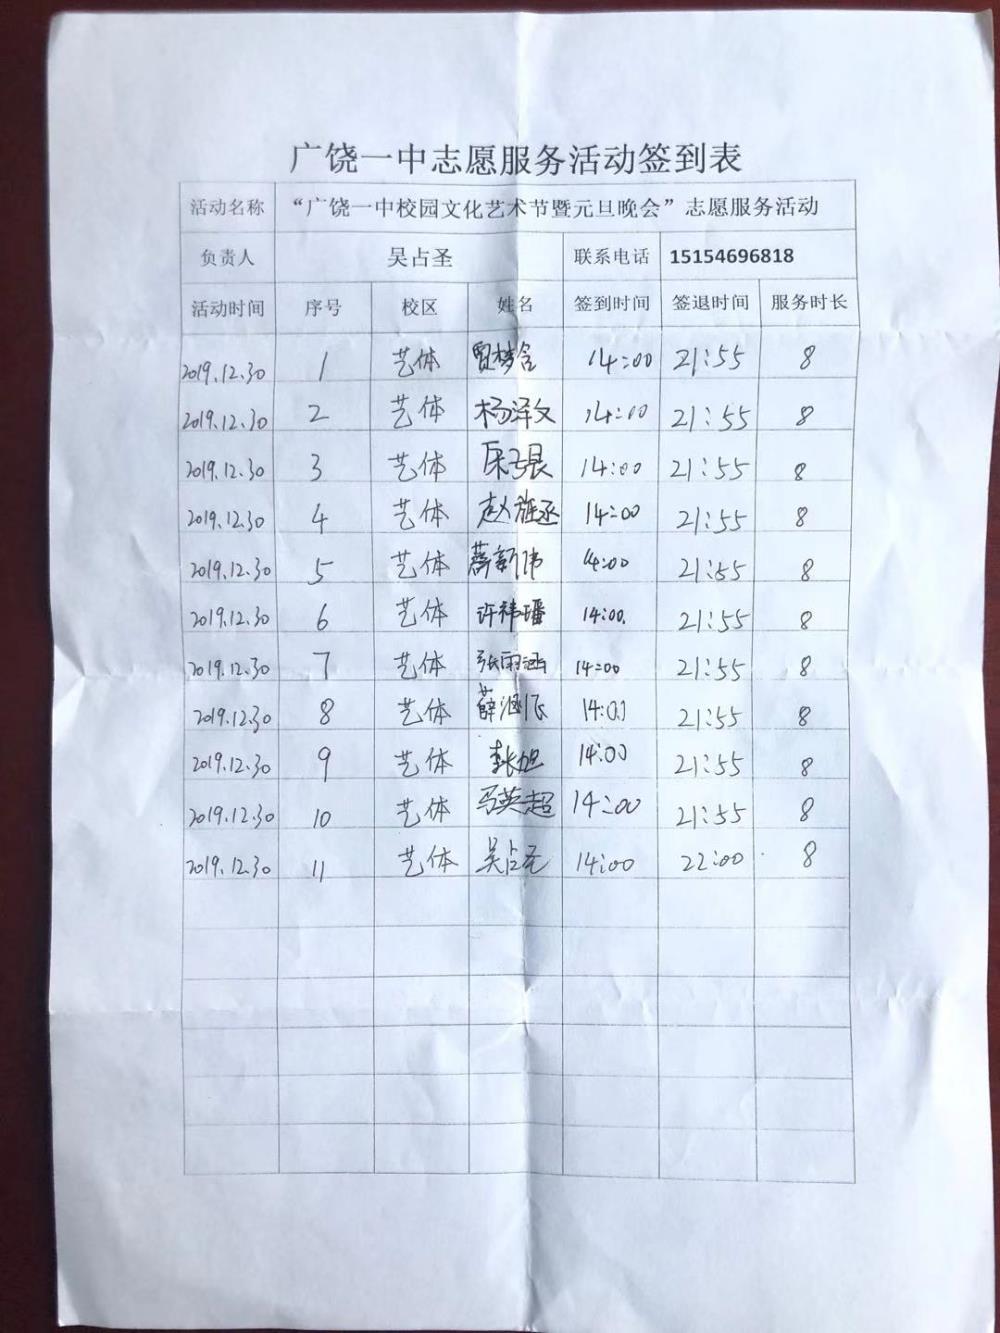 广饶一中志愿服务活动签到表
活动名称 “广饶一中校园文化艺术节暨元旦晚会”志愿服务活动
负责人 吴占圣 联系电话 15154696818
活动时间 序号 校区 姓名 签到时间 签退时间 服务时长
2019.12.30 1 艺体 贾梦含 14:00 21:55 8
2019.12.30 2 艺体 杨泽文 14:00 21:55 8
2019.12.30 3 艺体 14:00 21:55 8
2019.12.30 4 艺体 赵 14:00 21:55 8
2019.12.30 5 艺体 新伟 14:00 21:55 8
2019.12.30 6 艺体 许祎璠 14:00. 21:55 8
2019.12.30 7 艺体 张雨涵 14:00 21:55 8
2019.12.30 8 艺体 薛涵 14:00 21:55 8
2019.12.30 9 艺体 旭 14:00 21:55 8
2019.12.30 10 艺体 马英超 14:00 21:55 8
2019.12.30 11 艺体 吴占圣 14:00 22:00 8